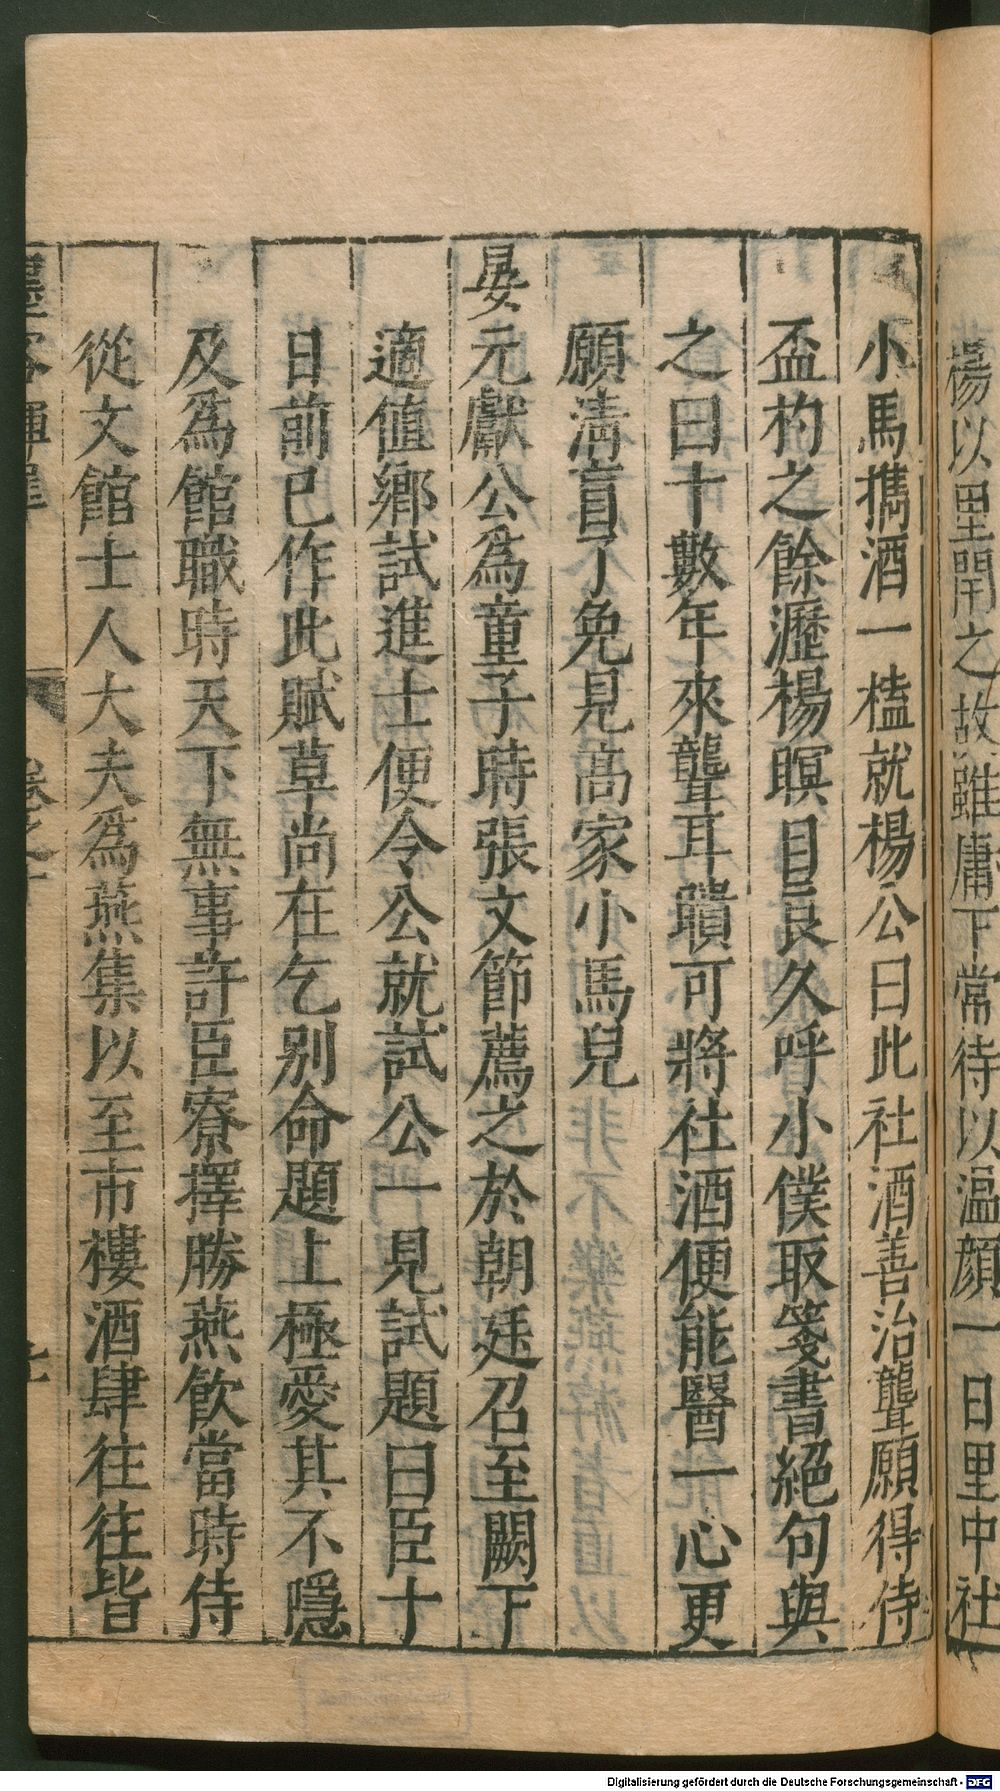 楊以里閈之故雖庸下常待以溫顏一日里中社
小馬携酒一榼就楊公曰此社酒善治聾願得侍
盃杓之餘瀝楊瞑目良久呼小僕取箋書絕句與
之曰十數年來聾耳聵可將社酒便能醫一心更
願淸盲了免見高家小馬兒
晏元獻公為童子時張文節薦之於朝廷召至闕下
適値鄉試進士便令公就試公一見試題曰臣十
日前已作此賦草尚在乞别命題上極愛其不隱
及為館職時天下無事許臣寮擇勝燕飲當時侍
從文館士人大夫為燕集以至市樓酒肆往往皆
Digitalisierung gefördert durch die Deutsche Forschungsgemeinschaft - DFG